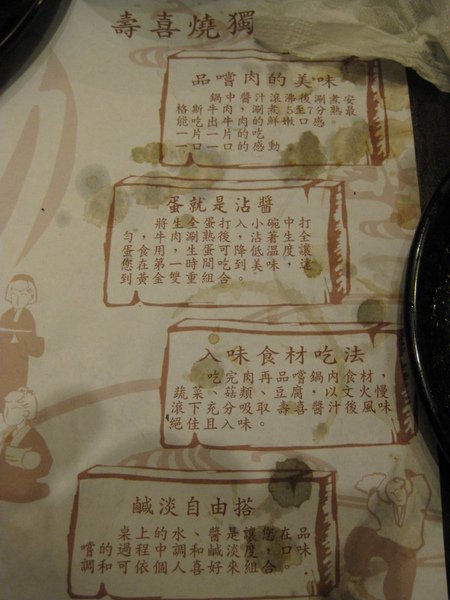 壽喜燒獨
品嚐肉的美味
鍋中醬汁滾沸後涮煮安
格斯牛肉、涮煮5至7分熟最
能吃出牛肉的鮮嫩口感。
一片一片的吃
一口一口的感動
蛋就是沾醬
將生全蛋打入小碗中打
勻,牛肉涮熟後,沾著生全
蛋食用,生蛋可降低溫度,讓
您在第一時間吃到美味,達
到黃金雙重組合。
入味食材吃法
吃完肉再品嚐鍋內食材,
蔬菜、菇類、豆腐,以文火慢
滾下充分吸取 壽喜醬汁後風味
絕佳且入味。
鹹淡自由搭
桌上的水、醬是讓您在品
嚐的過程中調和鹹淡度,口味
調和可依個人喜好來組合。